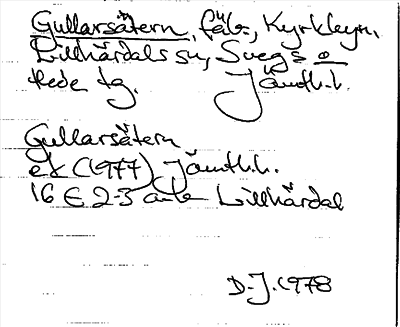 Gullarsätern, fäb., Kyrkbyn,
Lillhärdals sn, Svegs o
Hede tg. Jämtl.l.
Gullarsätern
ek (1977) Jämtl.l.
16 E 2-3 a-b Lillhärdal
D-J. 1978